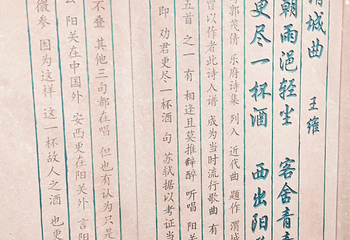 渭城曲 王维
朝雨浥轻尘 客舍青青
更尽一杯酒 西出阳
郭茂倩 乐府诗集 列入 近代曲 题作 渭城
曾以作者此诗入谱 成为当时流行歌曲 有
五首 之一 有 相逢且莫推辞醉 听唱 阳关
即 劝君更尽一杯酒 句 苏轼据以考证当
不叠 其他三句都在唱 但也有认为只是
云 阳关在中国外 安西更在阳关外 言阳
微参 因为这样 这一杯故人之酒 也更